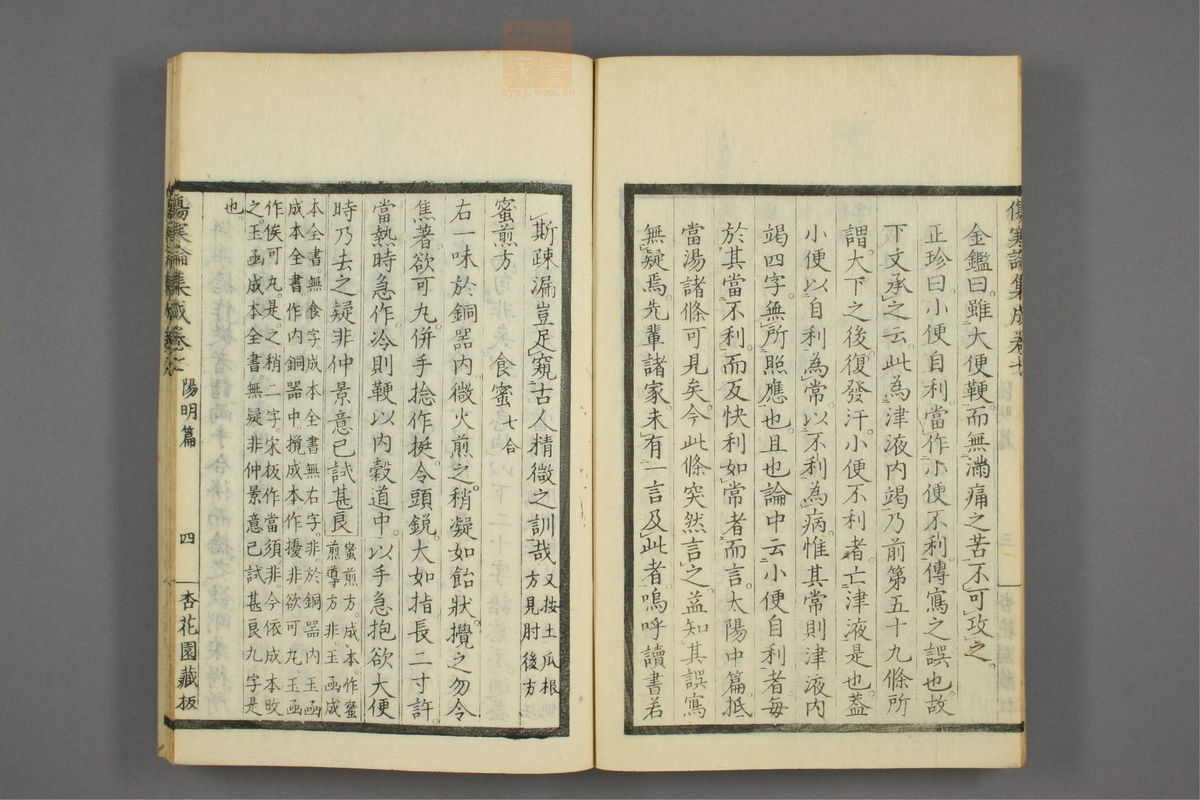 傷寒論集成卷七
金鑑曰。雖大便鞕。而無滿痛之苦。不可攻之。
正珍曰。小便自利。當作小便不利。傳寫之誤也。故
下文承之云。此為津液內竭。乃前第五十九條所
謂。大下之後。復發汗。小便不利者。亡津液是也。蓋
小便以自利為常。以不利為病。惟其常則津液內
竭四字。無所照應也。且也論中云小便自利者。每
於其當不利。而反快利如常者而言。太陽中篇抵
當湯諸條可見矣。今此條突然言之。益知其誤寫
無疑焉。先輩諸家。未有一言及此者。嗚呼讀書若
斯疎漏。豈足窺古人精微之訓哉又按土瓜根方見肘後方
蜜煎方
食蜜七合
右一味。於銅器內。微火煎之。稍凝如飴狀。攪之勿令
焦著。欲可丸。併手捻作挺。令頭銳。大如指。長二寸許。
當熱時急作。冷則鞕。以內穀道中。以手急抱。欲大便
時乃去之。疑非仲景意。已試甚良
蜜煎方。成本。作蜜煎導方。非。玉函成
本全書。無食字。成本全書無右字。非。於銅器內。玉函
成本全書作內銅器中。攪成本作擾。非。欲可丸。玉函
作俟可丸。是。之稍二字。宋板作當須。非。今依成本改
之。玉函成本全書。無疑非仲景意。已試甚良九字。是
也
傷寒論集成卷七
陽明篇
四
杏花園藏板
zysj.com.cn